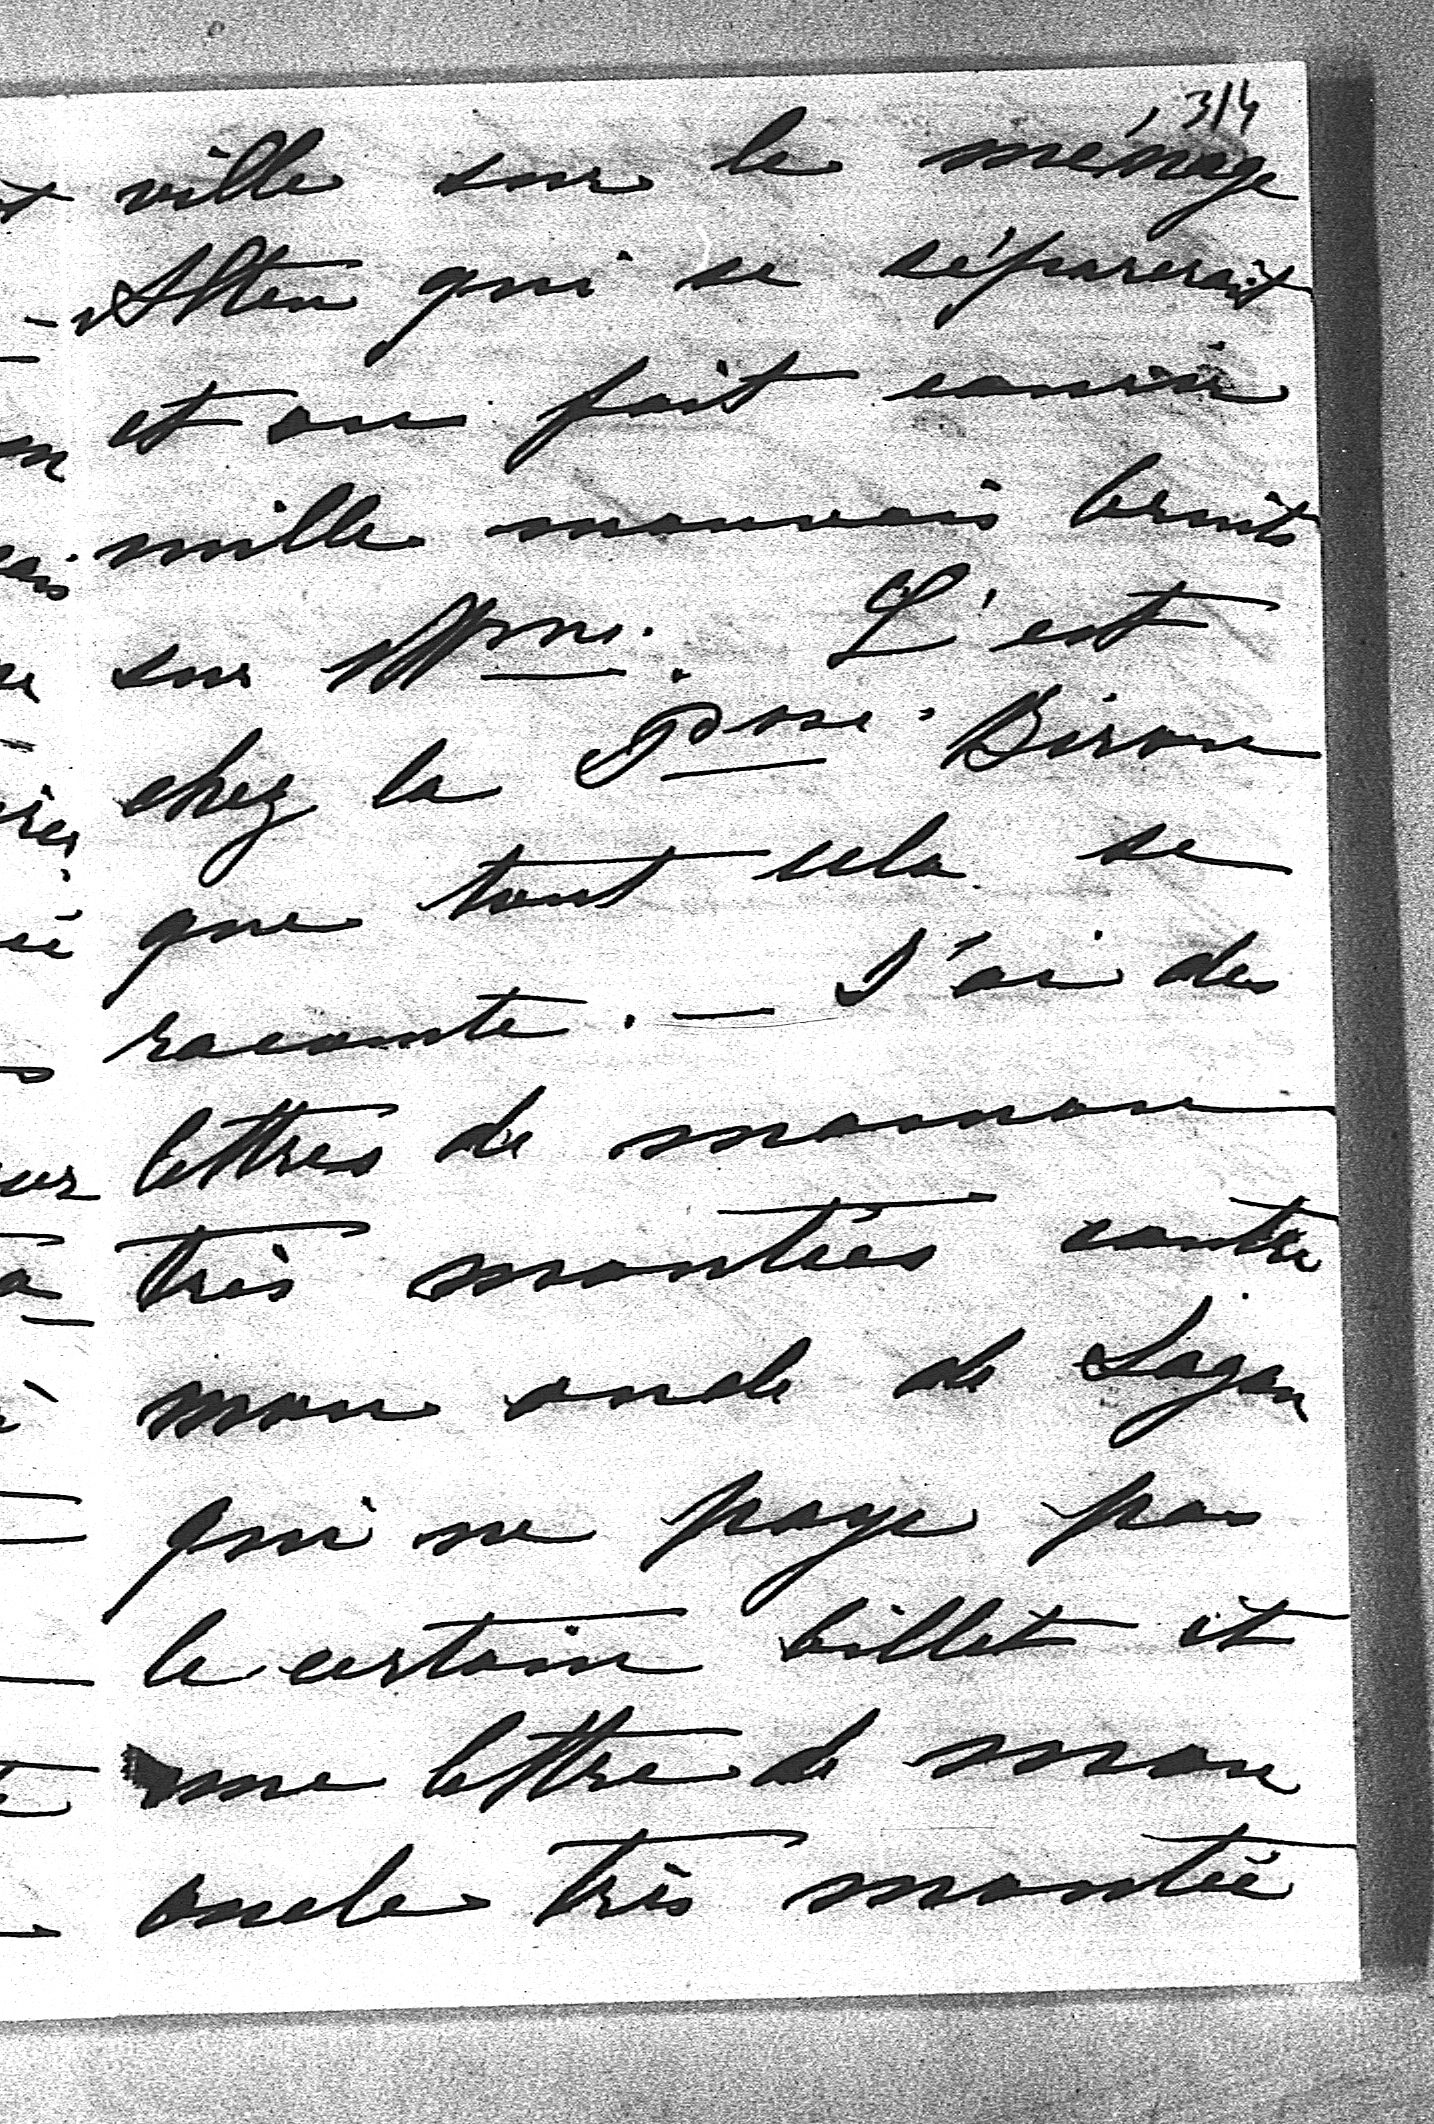 314
ville sur le ménage
Alten qui se séparerait
et on fait courir
mille mauvais bruits
sur Mme. C'est
chez la Psse. Biron
que tout cela se
raconte. — J'ai des
lettres de maman
très montées contre
mon oncle de Sagan
qui ne paye pas
le certain billet et
une lettre de mon
oncle très montée